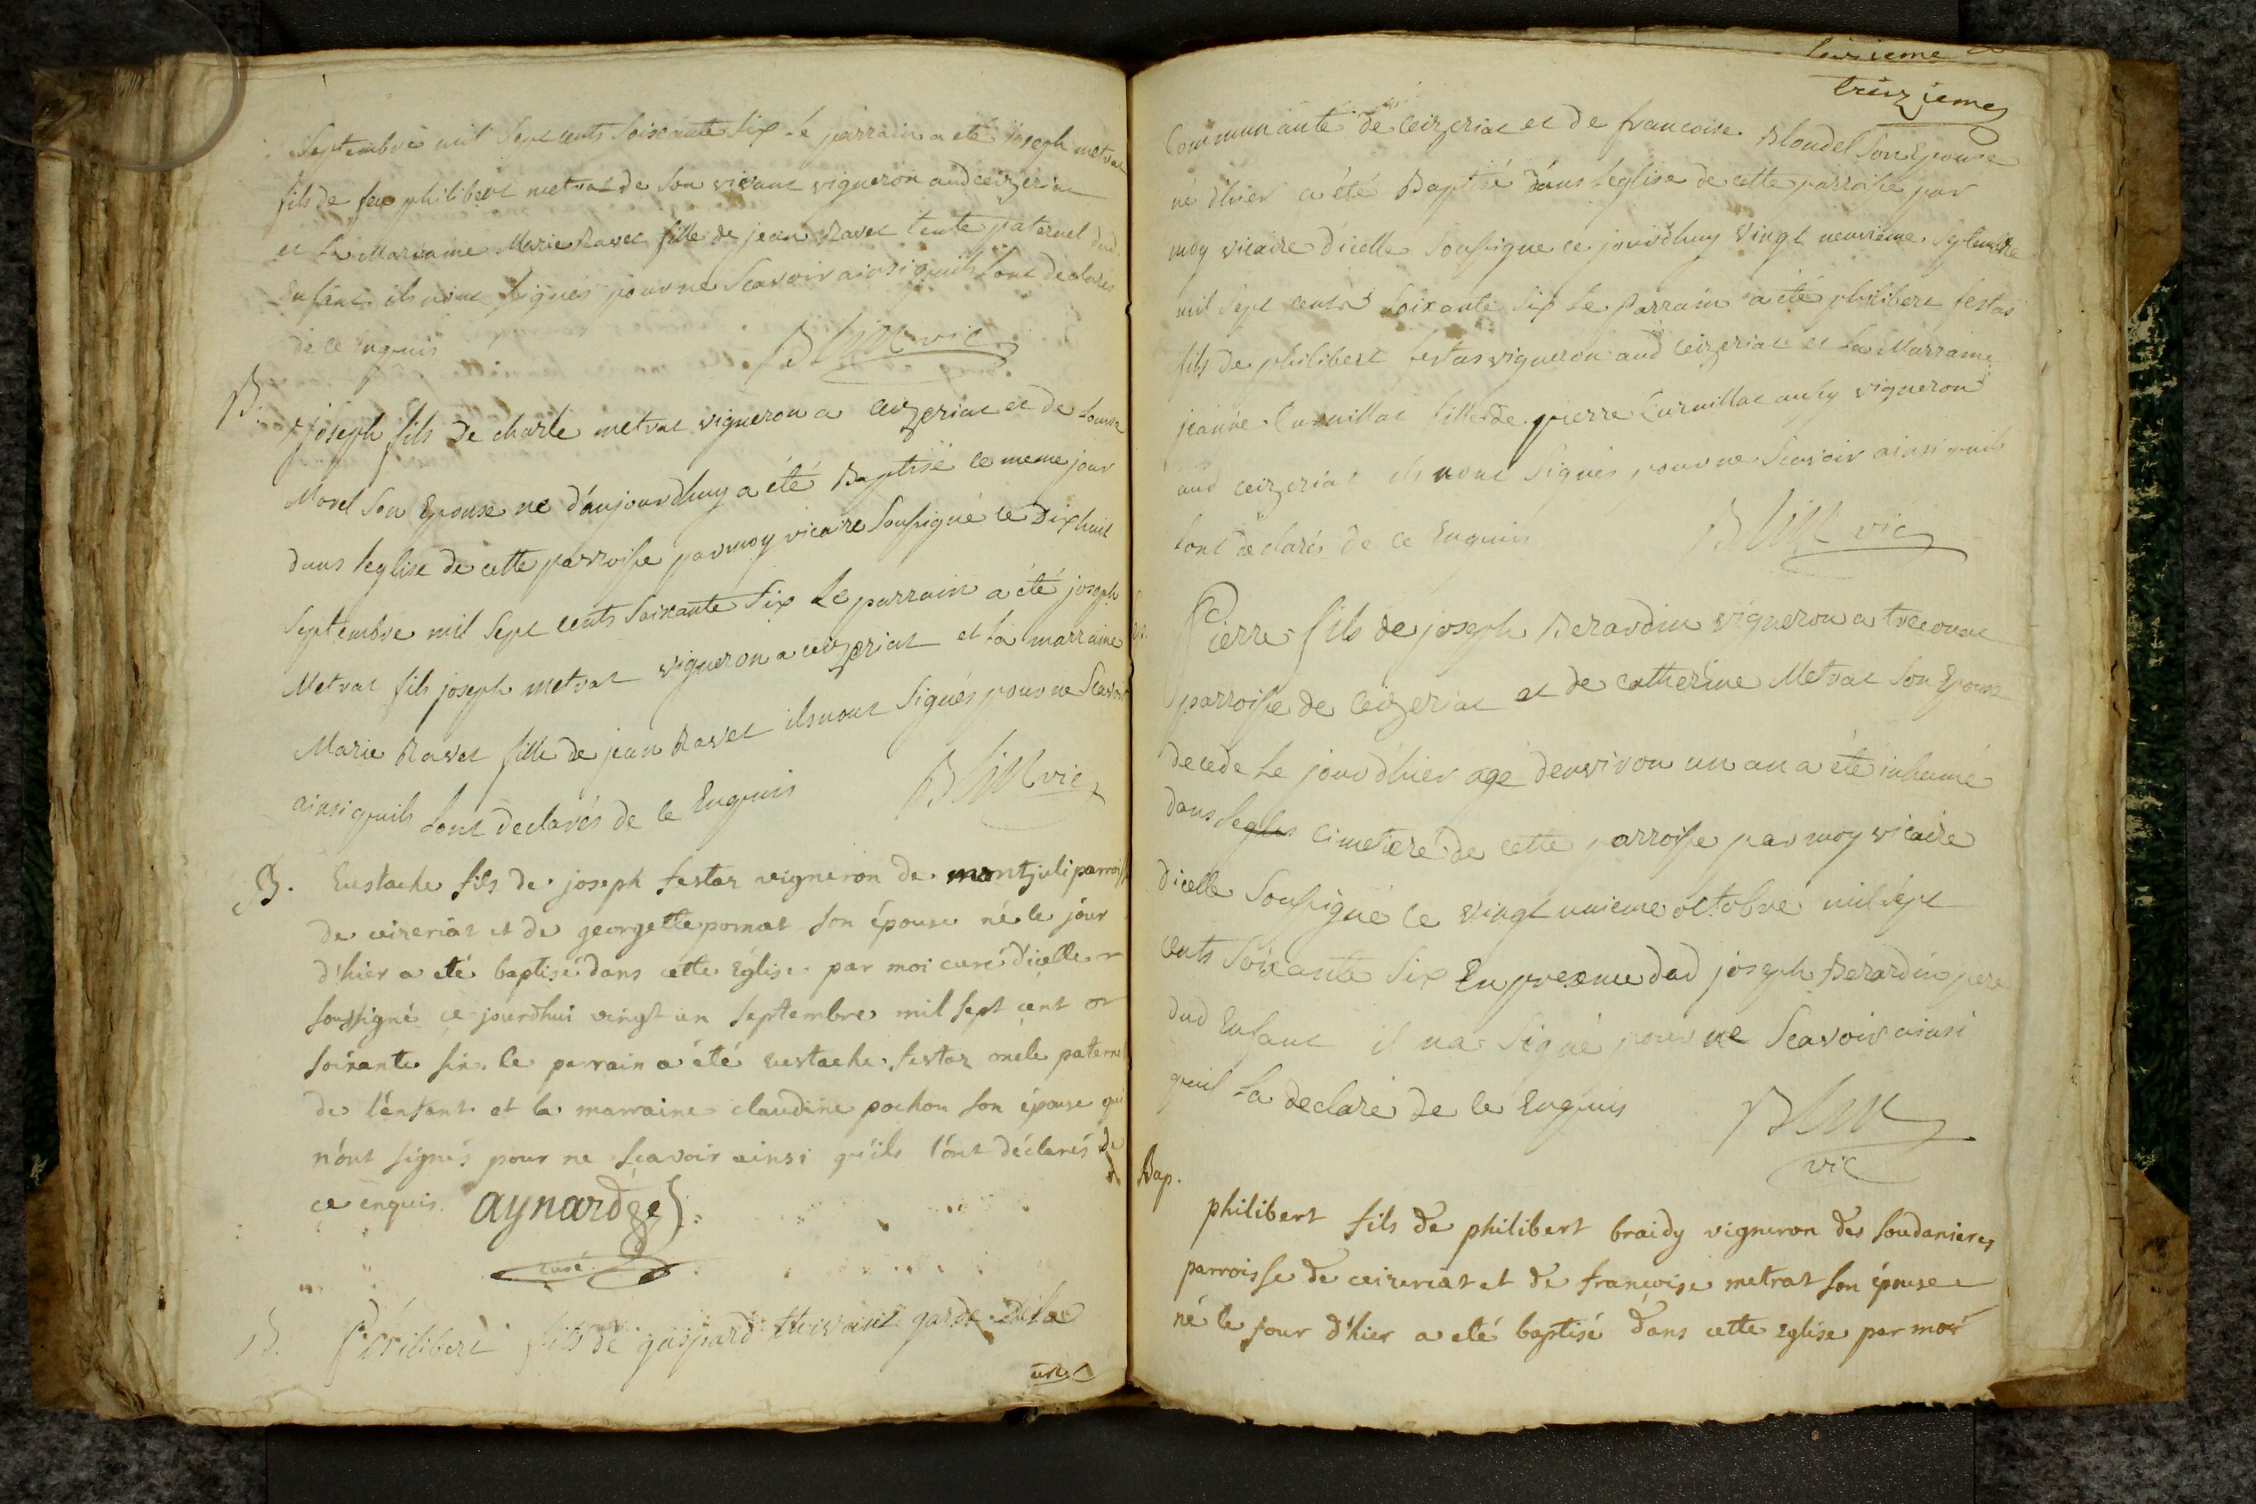 Septembre mil Sept cents Soixante Six Le parrain a eté joseph metrat
fils de feu philibert metrat de son vivant vigneron aud ceizeriat
et La Marraine Marie Ravet fille de jean Ravet tente paternel dud
Enfant ils nont Signés pour ne Scavoir ainsi quils Lont declarés
de ce Enquis vic
B.
joseph fils De charle metrat vigneron a ceizeriat et de Louise
Morel Son Epouse né d'aujourdhuy a été Baptisé le meme jour
dans leglise de cette parroisse par moy vicaire Soussigné ce Dixhuit
Septembre mil Sept cents Soixante Six Le parrain a été joseph
Metrat fils joseph metrat vigneron a ceizeriat et la marraine
Marie Ravet fille de jean Ravet ils nont Signés pour ne Scavoir
ainsi quils Lont declarés de ce Enquis vic
B. Eustache fils de joseph festas vigneron de montjuli parroisse
de ceizeriat et de georgette pomat son épouse né le jour
d'hier a eté baptisé dans cette Eglise par moi curé d'icelle
soussigné ce jourdhui vingt un septembre mil sept cent
soixante six. le parrain a été eustache festas oncle paternel
de l'enfant et la marraine claudine pochon son épouse qui
n'ont signés pour ne scavoir ainsi qu'ils l'ont déclarés de
ce enquis. aynard
curé
B. Philibert fils de gaspard garde de la
treizieme
Communauté de ceizeriat et de francoise Blondel Son Epouse
né d'hier a été Baptisé dans leglise de cette parroisse par
moy vicaire Dicelle Soussigné ce jourdhuy Vingt neuvieme Septembre
mil Sept cents Soixante Six Le Parrain a été philibert festas
fils De philibert festas vigneron aud Ceizeriat et La Marraine
jeanne Curnillat fille de pierre Curnillat aussy vigneron
aud ceizeriat ils nont Signés pour ne Scavoir ainsi quils
Lont declarés de ce Enquis vic
Pierre fils de joseph Berardin vigneron a treconat
parroisse de Ceizeriat et de catherine Metrat Son Epouse
decedé Le jour d'hier agé d'environ un an a été inhumé
dans Leglis Cimetiere de cette parroisse par moy vicaire
Dicelle Soussigné ce Vingt unieme octobre mil Sept
cents Soixante Six En presence dud joseph Berardin pere
dud Enfant il na Signé pour ne Scavoir ainsi
quil La declaré de ce Enquis
vic
Bap.
philibert fils de philibert braidy vigneron des soudanieres
parroisse de ceizeriat et de françoise metrat son épouse
né le jour d'hier a eté baptisé dans cette Eglise par moi